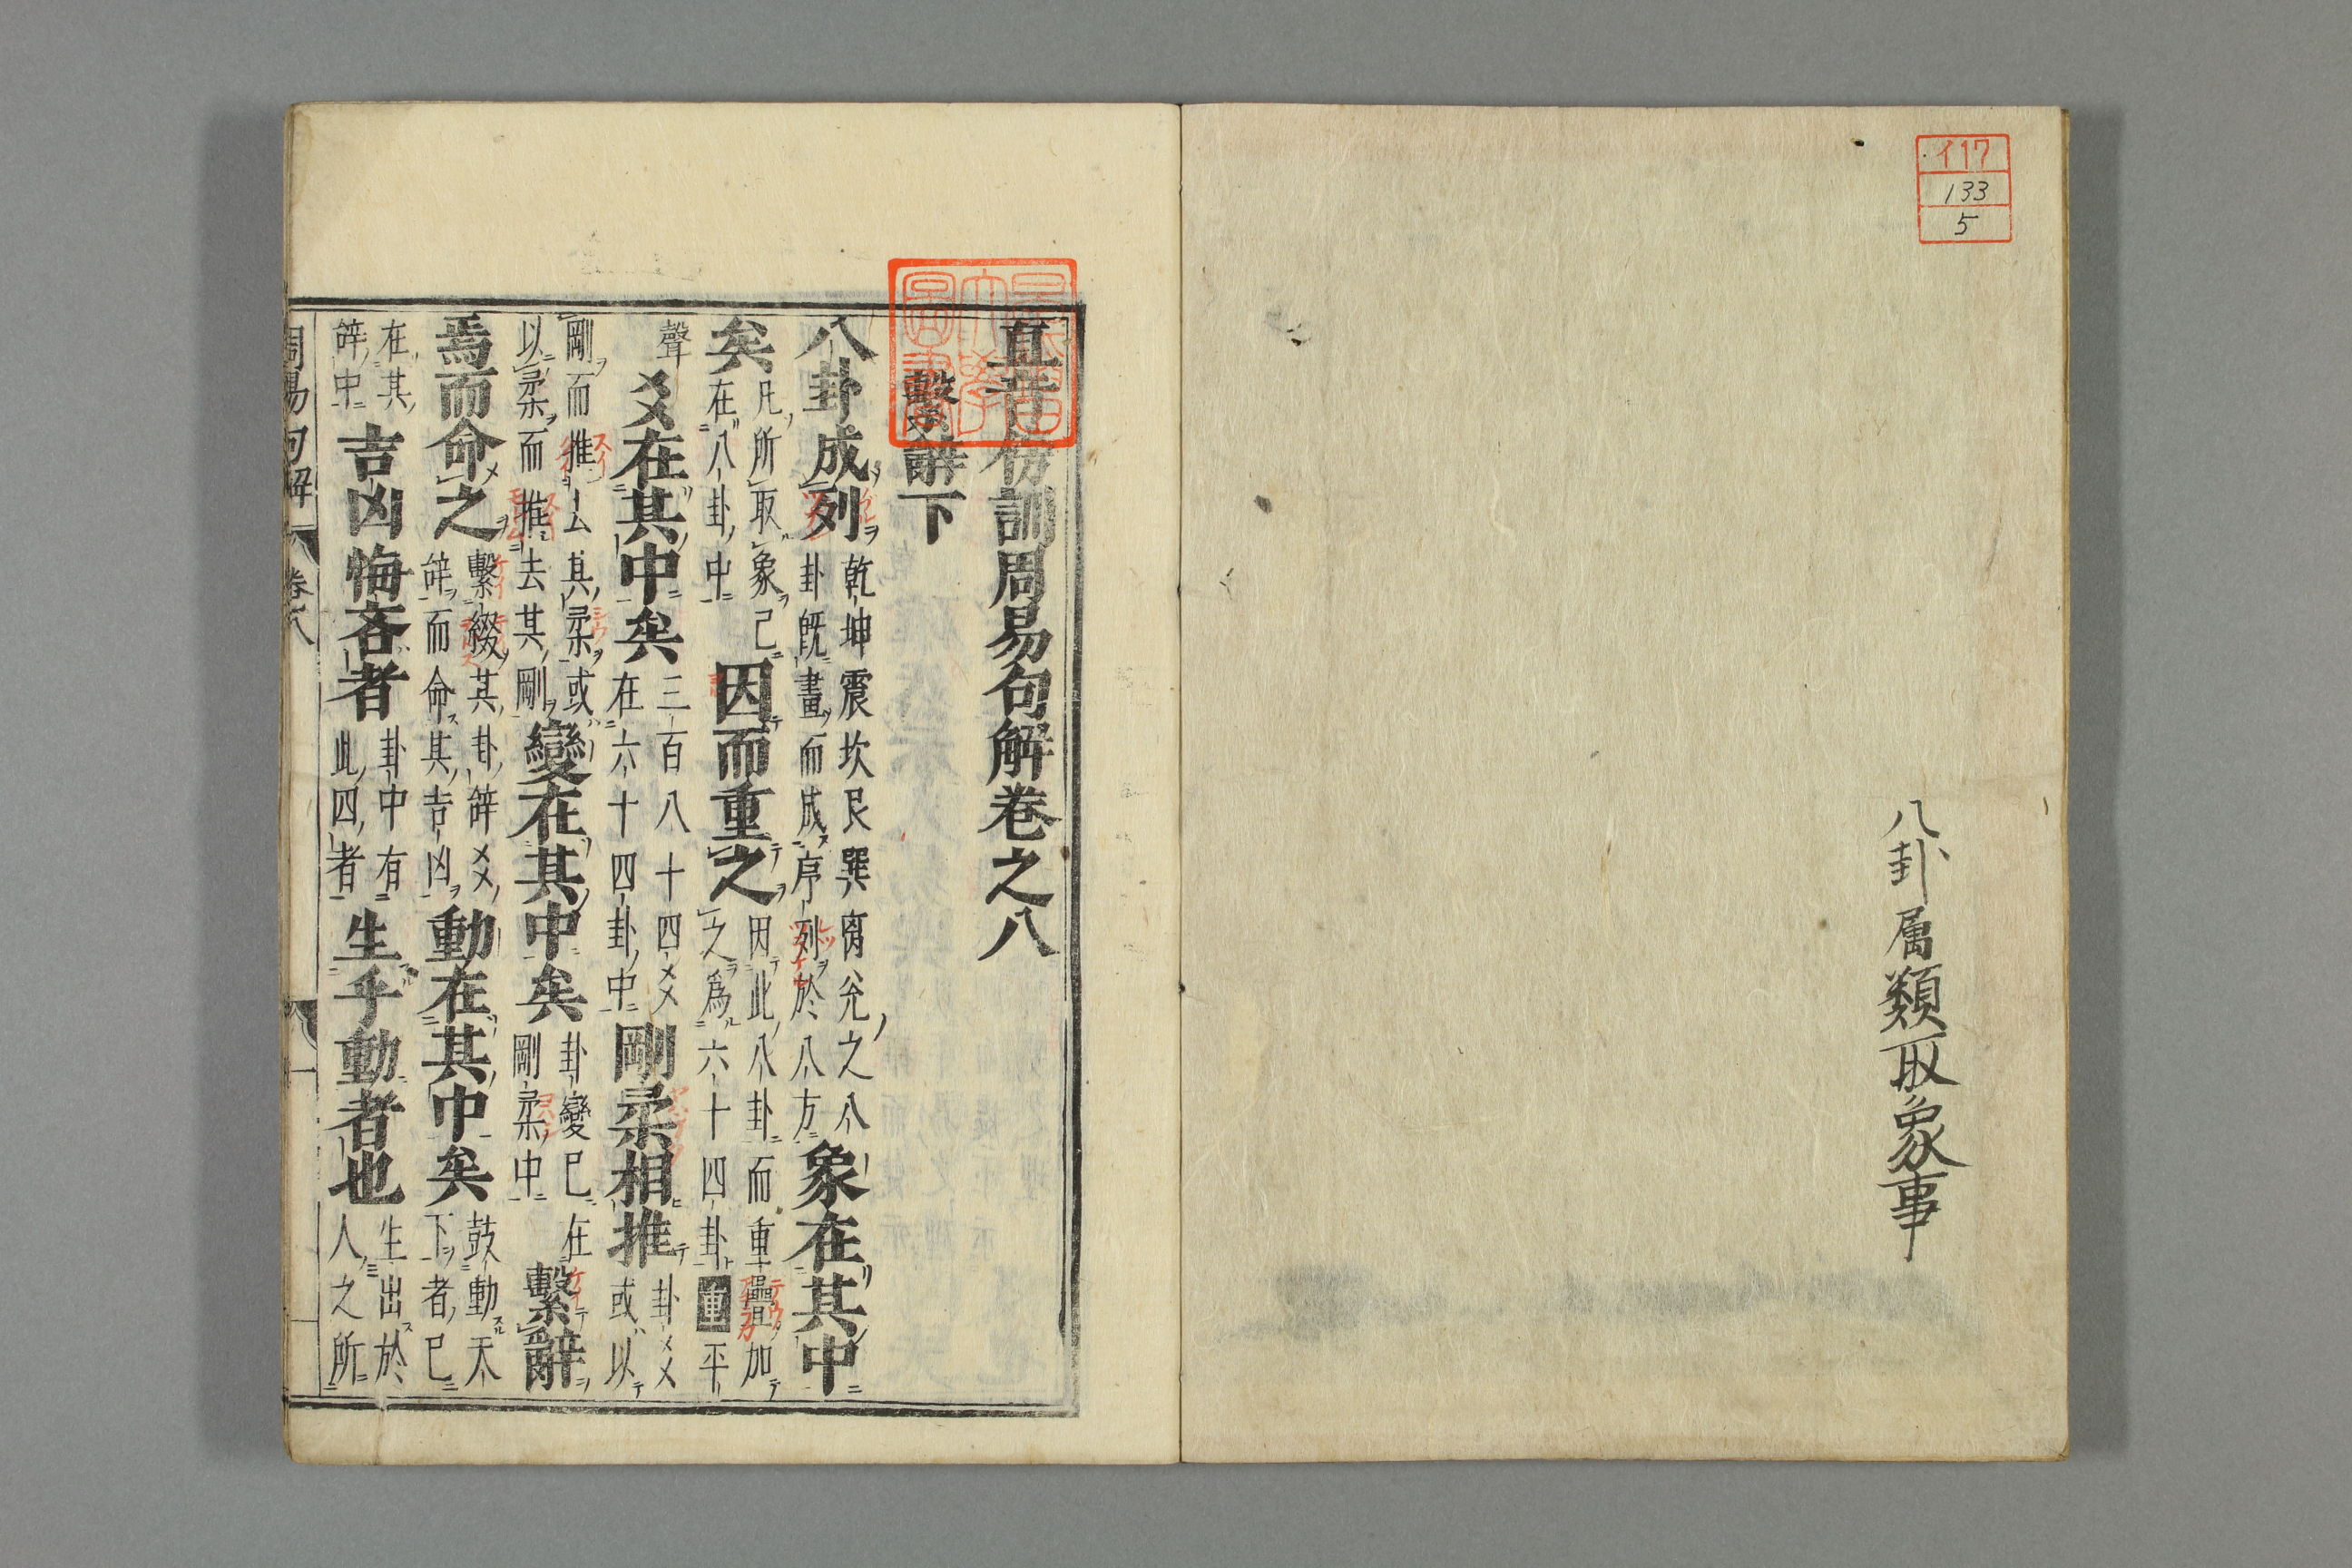 イ17
133
5
八卦属類取象事
直音傍訓周易句解卷之八
繫辭下
八卦成列 乾坤震坎艮巽离兊之八 卦既畫而成序列於八方 象在其中
矣 凡所取象已 在八卦中 因而重之 因此八卦而重疊加 之為六十四卦 重平
聲 爻在其中矣 三百八十四爻 在六十四卦中 剛柔相推 卦爻或以
剛而推去其柔或 以柔而推去其剛 變在其中矣 卦變已在 剛柔中 繫辭
焉而命之 繫綴其卦辞爻 辞而命其吉凶 動在其中矣 鼓動天 下者已
在其 辞中 吉凶悔吝者 卦中有 此四者 生乎動者也 生出於 人之所
周易句解 卷八 一